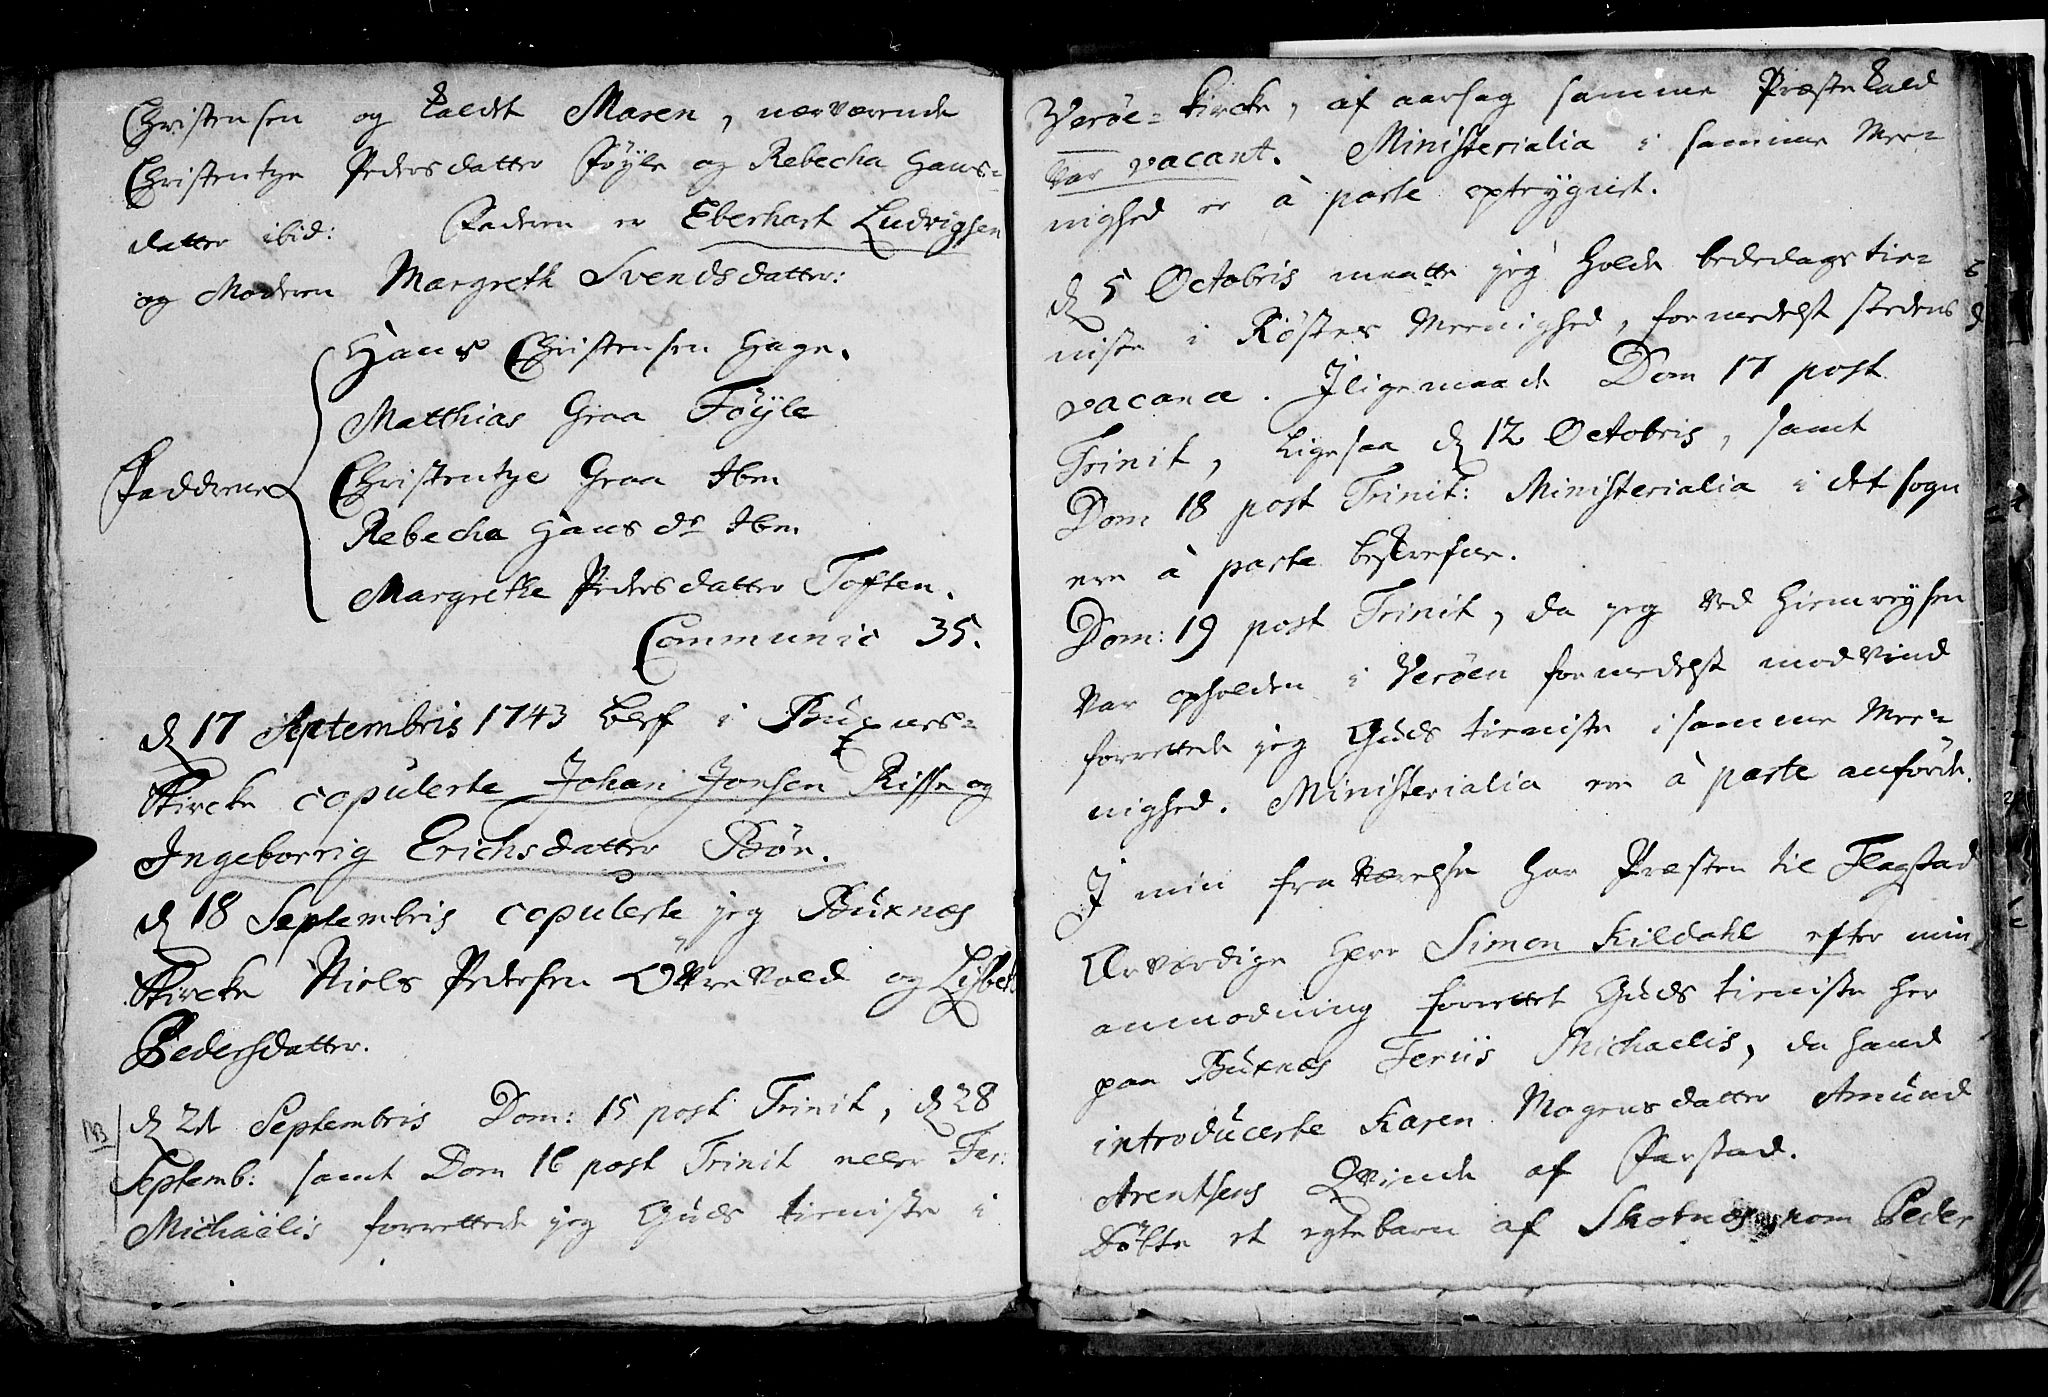 Christensen og kaldt Maren, nærværende
Christentze Pedersdatter Føyle og Rebecha Hans-
datter ibid: Faderen er Eberhart Ludvigsen
og Moderen Margreth Svendsdatter:
Hans Christensen Hage.
Matthias Graa Føyle
Fadderne Christentze Graa Ibm
Rebecha Hans dr Ibm.
Margrethe Pedersdatter Toften.
Communic 35.
d 17 Septembris 1743 blef i Buxnes-
Kircke copulerte Johan Jonsen Risse og
Ingeborrig Erichsdatter Bön.
d 18 Septembris copulerte jeg Buxnæs
Kircke Niels Pedersen Ovrevold og Lisbet
Pedersdatter.
NB d 21 Septembris Dom: 15 post Trinit, d 28
Septemb: samt Dom 16 post Trinit eller Fer:
Michaëlis forrettede jeg Guds tieniste i
Verøe-Kircke, af aarsag samme Præstekald
var vacant. Ministerialia i samme Mee-
nighed er à parte optegnet.
d 5 Octobris maatte jeg holde bededags tie-
niste i Röstes Meenighed, formedelst stedens
vacance. Iligemaade Dom 17 post
Trinit, ligesaa d 12 Octobris, samt
Dom: 18 post Trinit: Ministerialia i det sogn
ere à parte beskrefne.
Dom: 19 post Trinit, da jeg ved Hiemreysen
var opholden i Verøen formedelst modvind
forrettede jeg Guds tieniste i samme Mee-
nighed. Ministerialia ere à parte anförde.
I min fraværelse har Præsten til Flagstad
Ærværdige Herr Simon Kildahl efter min
anmodning forrettet Guds tieniste her
paa Buxnæs Feriis Michaelis, da hand
introducerte Karen Mogensdatter Amund
Arentsens Qvinde af Farstad.
Döbte et egtebarn af Skotnæs som Peder